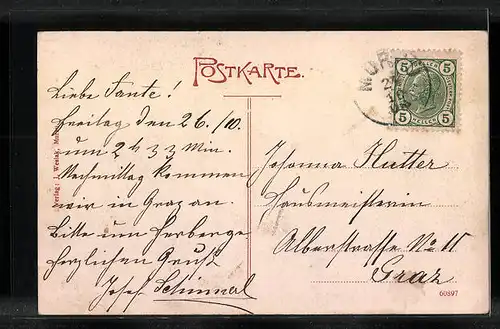 POSTKARTE.
Liebe Tante!
Freitag den 26./10.
um 2 h 33 Min.
Nachmittag kommen
wir in Graz an.
Bitte um Herberge
herzlichen Gruß
Josef Schimmel
Johanna Hutter
Hausmeisterin
Alberstrasse No 11
Graz
5 5
5 HELLER 5
60897
Verlag: J. Weslag,